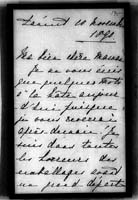 10 Novembre
1890
Ma bien chère maman
Je ne vous écris
que quelques mots
à la hâte aujour
d'hui puisque
je vous reverrai
après-demain. Je
suis dans toutes
les horreurs des
emballages avant
un grand départ